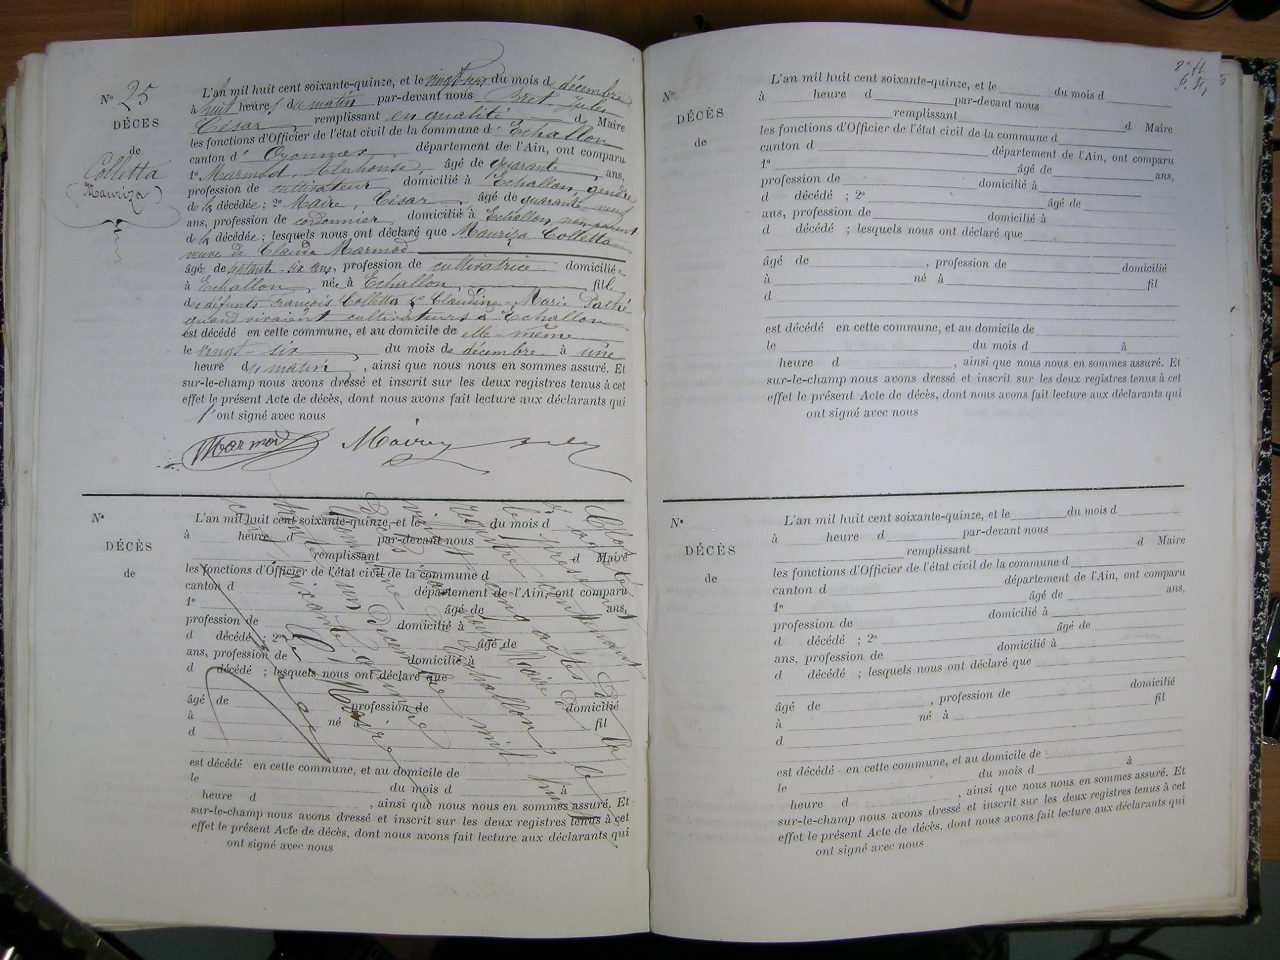 N° 25
DÉCÈS
de
Colletta
(Mauriza)
L'an mil huit cent soixante-quinze, et le vingt-six du mois d e décembre
à huit heures du matin par-devant nous Bret, Jules
César remplissant en qualité d Maire
les fonctions d'Officier de l'état civil de la commune d' Echallon
canton d' Oyonnax département de l'Ain, ont comparu
1° Marmod, Alphonse, âgé de quarante ans,
profession de cultivateur domicilié à Echallon, gendre
de la décédée; 2° Maire, César, âgé de quarante neuf
ans, profession de cordonnier domicilié à Echallon, non parent
de la décédée; lesquels nous ont déclaré que Mauriza Colletta
veuve de Claude Marmod
âgé de septante-six ans, profession de cultivatrice domiciliée
à Echallon, née à Echallon, fil
des défunts François Colletta et Claudine-Marie
quand vivaient cultivateurs à Echallon
est décédé en cette commune, et au domicile de elle-même
le vingt-six du mois de décembre à une
heure du matin, ainsi que nous nous en sommes assuré. Et
sur-le-champ nous avons dressé et inscrit sur les deux registres tenus à cet
effet le présent Acte de décès, dont nous avons fait lecture aux déclarants qui
ont signé avec nous
Marmod
N°
DÉCÈS
de
L'an mil huit cent soixante-quinze, et le du mois d
à heure d par-devant nous
remplissant d Maire
les fonctions d'Officier de l'état civil de la commune d
canton d département de l'Ain, ont comparu
1° âgé de ans,
profession de domicilié à
d décédé ; 2° âgé de
ans, profession de domicilié à
d décédé ; lesquels nous ont déclaré que
âgé de profession de domicilié
à né à fil
d
est décédé en cette commune, et au domicile de
le du mois d à
heure d , ainsi que nous nous en sommes assuré. Et
sur-le-champ nous avons dressé et inscrit sur les deux registres tenus à cet
effet le présent Acte de décès, dont nous avons fait lecture aux déclarants qui
ont signé avec nous
N°
DÉCÈS
de
L'an mil huit cent soixante-quinze, et le du mois d
à heure d par-devant nous
remplissant d Maire
les fonctions d'Officier de l'état civil de la commune d
canton d département de l'Ain, ont comparu
1° âgé de ans,
profession de domicilié à
d décédé ; 2° âgé de
ans, profession de domicilié à
d décédé ; lesquels nous ont déclaré que
âgé de , profession de domicilié
à né à fil
d
est décédé en cette commune, et au domicile de
le du mois d à
heure d , ainsi que nous nous en sommes assuré. Et
sur-le-champ nous avons dressé et inscrit sur les deux registres tenus à cet
effet le présent Acte de décès, dont nous avons fait lecture aux déclarants qui
ont signé avec nous
N°
DÉCÈS
de
L'an mil huit cent soixante-quinze, et le du mois d
à heure d par-devant nous
remplissant d Maire
les fonctions d'Officier de l'état civil de la commune d
canton d département de l'Ain, ont comparu
1° âgé de ans,
profession de domicilié à
d décédé ; 2° âgé de
ans, profession de domicilié à
d décédé ; lesquels nous ont déclaré que
âgé de , profession de domicilié
à né à fil
d
est décédé en cette commune, et au domicile de
le du mois d à
heure d , ainsi que nous nous en sommes assuré. Et
sur-le-champ nous avons dressé et inscrit sur les deux registres tenus à cet
effet le présent Acte de décès, dont nous avons fait lecture aux déclarants qui
ont signé avec nous